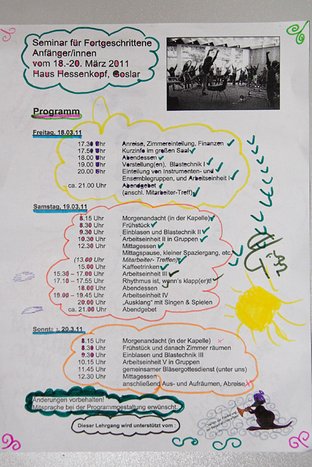 Seminar für Fortgeschrittene
Anfänger/innen
vom 18.-20. März 2011
Haus Hessenkopf, Goslar
Programm
Freitag, 18.03.11
17.30 Uhr Anreise, Zimmereinteilung, Finanzen
17.50 Uhr Kurzinfo im großen Saal
18.00 Uhr Abendessen
19.00 Uhr Vorstellen(n), Blastechnik I
20.00 Uhr Einteilung von Instrumenten- und
Ensemblegruppen, und Arbeitseinheit I
ca. 21.00 Uhr Abendgebet
(anschl. Mitarbeiter-Treff)
Samstag, 19.03.11
8.15 Uhr Morgenandacht (in der Kapelle)
8.30 Uhr Frühstück
9.30 Uhr Einblasen und Blastechnik II
10.30 Uhr Arbeitseinheit II in Gruppen
12.30 Uhr Mittagessen
Mittagspause, kleiner Spaziergang, etc.
(13.00 Uhr Mitarbeiter- Treffen)
15.00 Uhr Kaffeetrinken
15.30 - 17.00 Uhr Arbeitseinheit III
17.10 - 17.55 Uhr Rhythmus ist, wenn's klapp(er)t!
18.00 Uhr Abendessen
19.00 - 19.45 Uhr Arbeitseinheit IV
20.00 Uhr „Ausklang" mit Singen & Spielen
ca. Uhr Abendgebet
Sonntag, 20.3.11
8.15 Uhr Morgenandacht (in der Kapelle)
8.30 Uhr Frühstück und danach Zimmer räumen
9.30 Uhr Einblasen und Blastechnik III
10.15 Uhr Arbeitseinheit V in Gruppen
11.45 Uhr gemeinsamer Bläsergottesdienst (unter uns)
12.30 Uhr Mittagessen
anschließend Aus- und Aufräumen, Abreise
Änderungen vorbehalten!
Mitsprache bei der Programmgestaltung erwünscht.
Dieser Lehrgang wird unterstützt vom